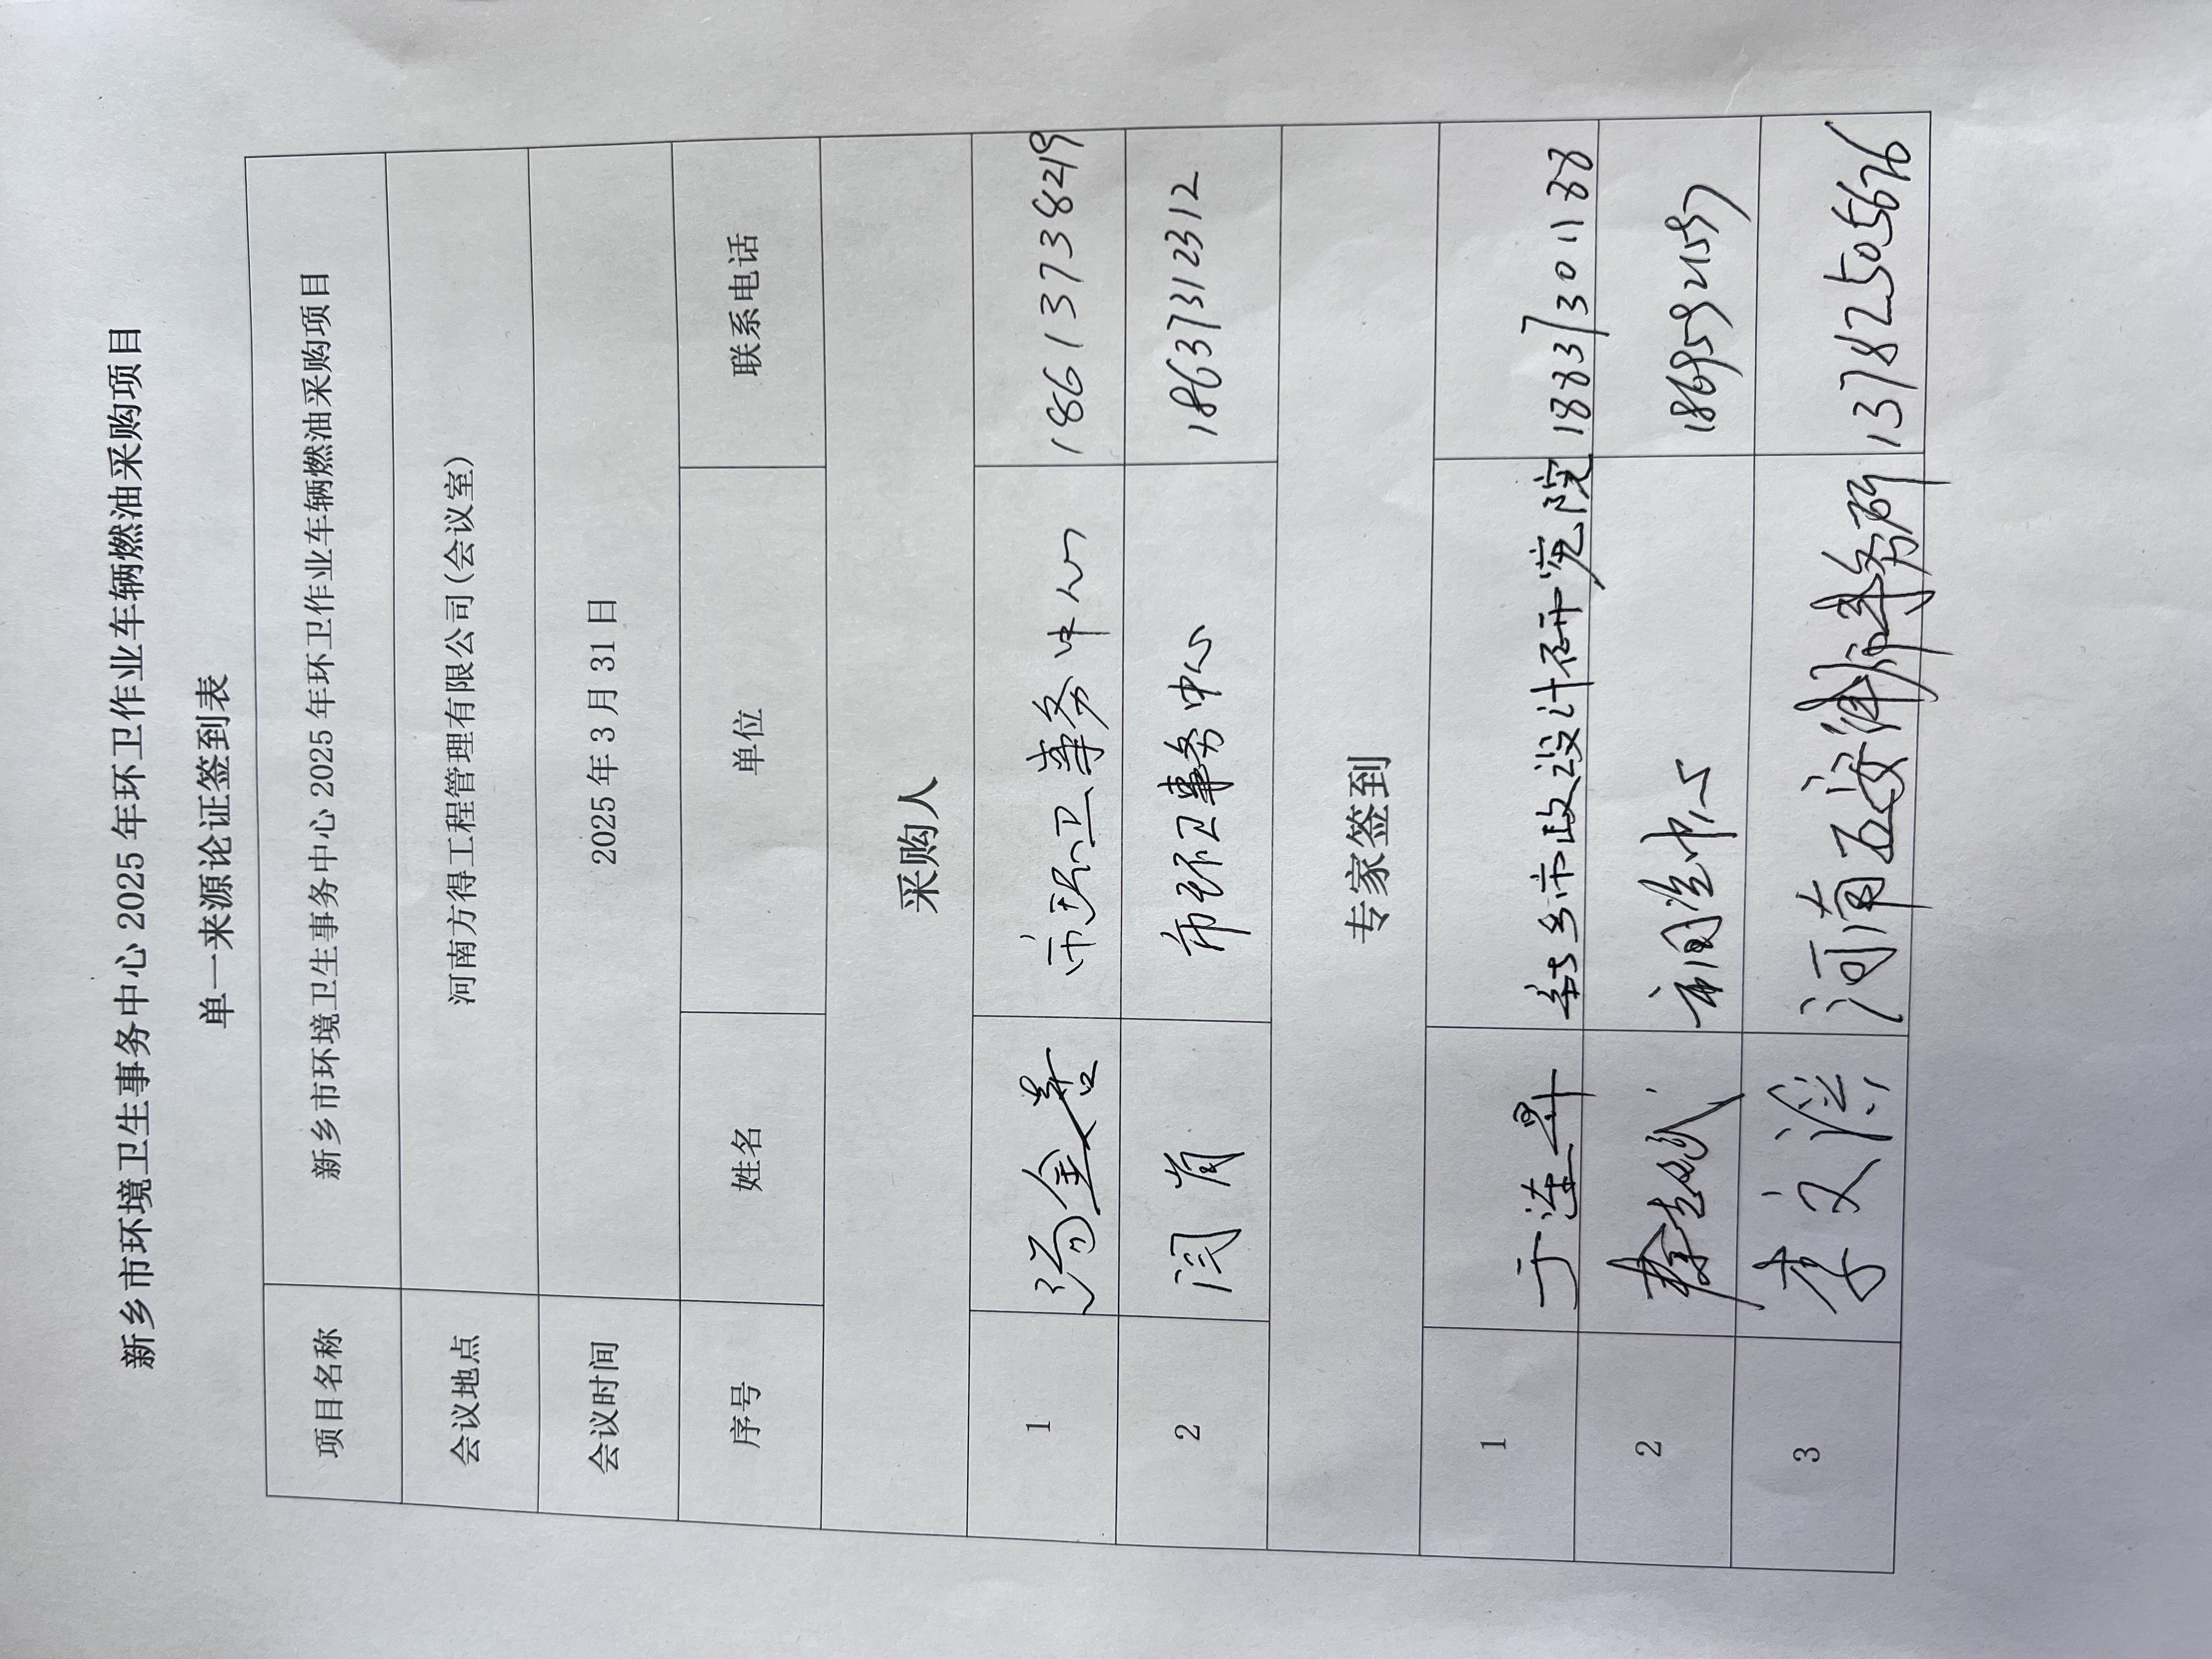 新乡市环境卫生事务中心 2025 年环卫作业车辆燃油采购项目
单一来源论证签到表
项目名称 新乡市环境卫生事务中心 2025 年环卫作业车辆燃油采购项目
会议地点 河南方得工程管理有限公司(会议室)
会议时间 2025 年 3 月 31 日
序号 姓名 单位 联系电话
采购人
1 市环卫事务中心 18613738219
2 闫肖 市环卫事务中心 18637312312
专家签到
1 于连昇 新乡市政设计研究院 18837301188
2 中心
3 李文 河南 律师事务所 13782505676